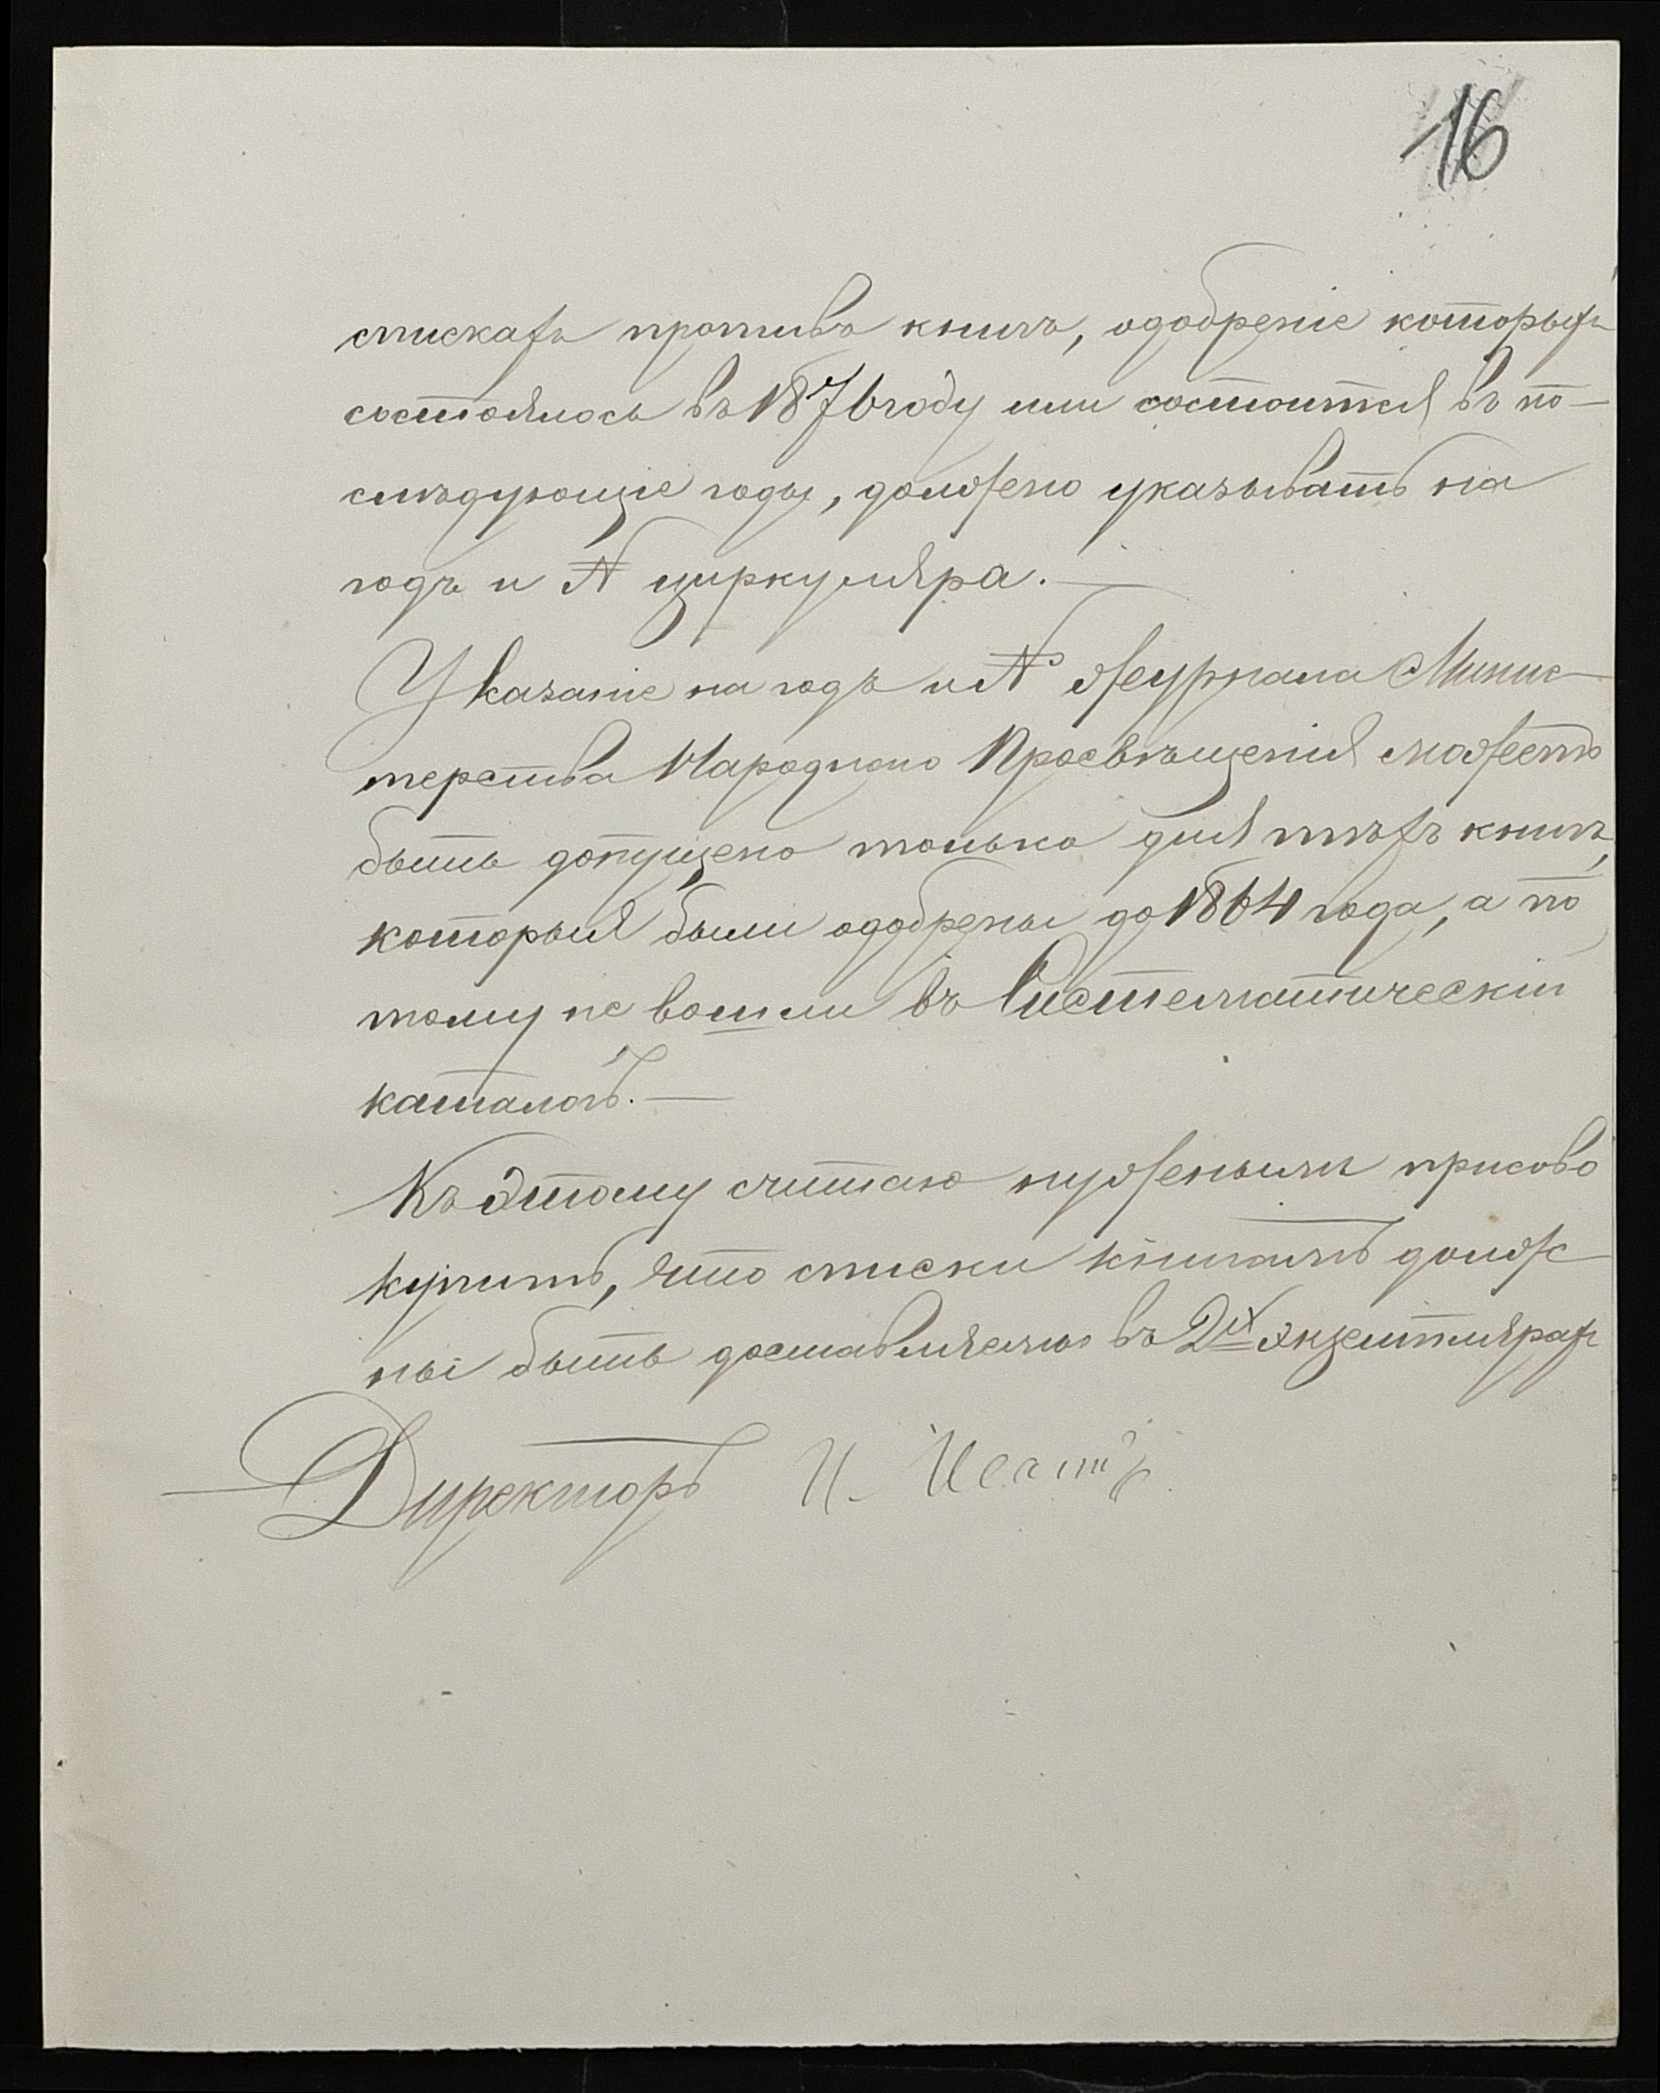 16
спискахъ противъ книгъ, одобреніе которыхъ
состоялось въ 1876 году или состоится въ по-
слѣдующіе годы, должно указывать на
годъ и № циркуляра. —
Указаніе на годъ и № Журнала Минис-
терства Народнаго Просвѣщенія можетъ
быть допущено только для тѣхъ книгъ,
которыя были одобрены до 1864 года, а по
тому не вошли въ Систематическій
каталогъ. —
Къ этому считаю нужнымъ присово
купить, что списки книгамъ долж-
ны быть доставляемы въ 2х экземплярах
Директоръ И.